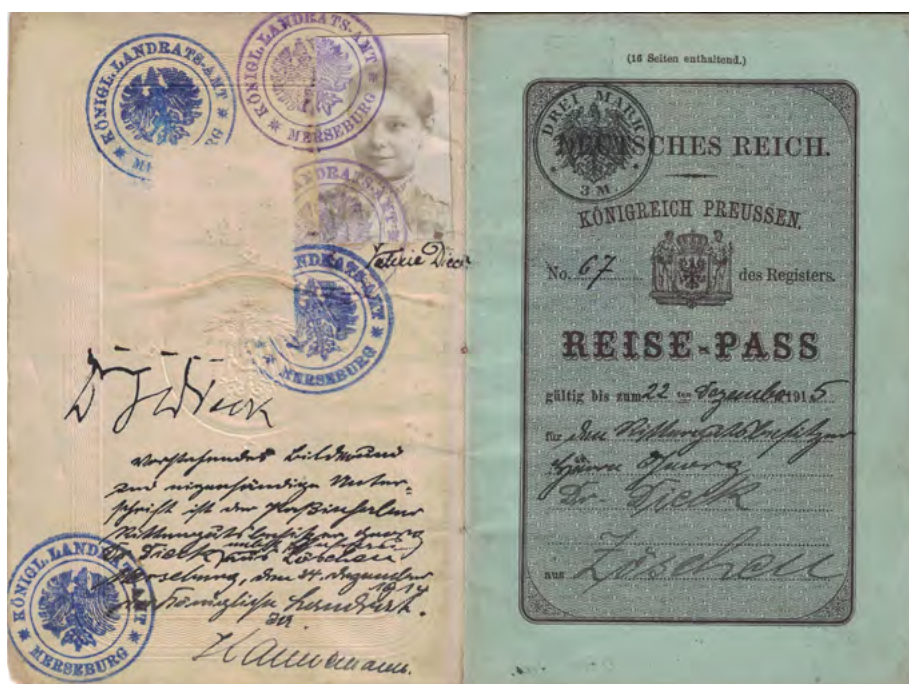 KÖNIGL. LANDRATS-AMT
MERSEBURG
KÖNIGL. LANDRATS-AMT
MERSEBURG
LANDRATS-AMT
Valerie Dieck
LANDRATS-AMT
MERSEBURG
Dr G Dieck
Vorstehendes Bild
und eigenhändige Unter-
schrift ist der Paßinhaber
Rittergutsbesitzer Georg
Dr. Dieck aus Zöschen
Merseburg, den 24. Dezember
1914
Königliche Landrat.
KÖNIGL. LANDRATS-AMT
MERSEBURG
(16 Seiten enthaltend.)
DREI MARK
3 M.
DEUTSCHES REICH.
KÖNIGREICH PREUSSEN.
No. 67 des Registers.
REISE-PASS
gültig bis zum 22 ten Dezember 1915
für den Rittergutsbesitzer
Herrn Georg
Dr. Dieck
aus Zöschen